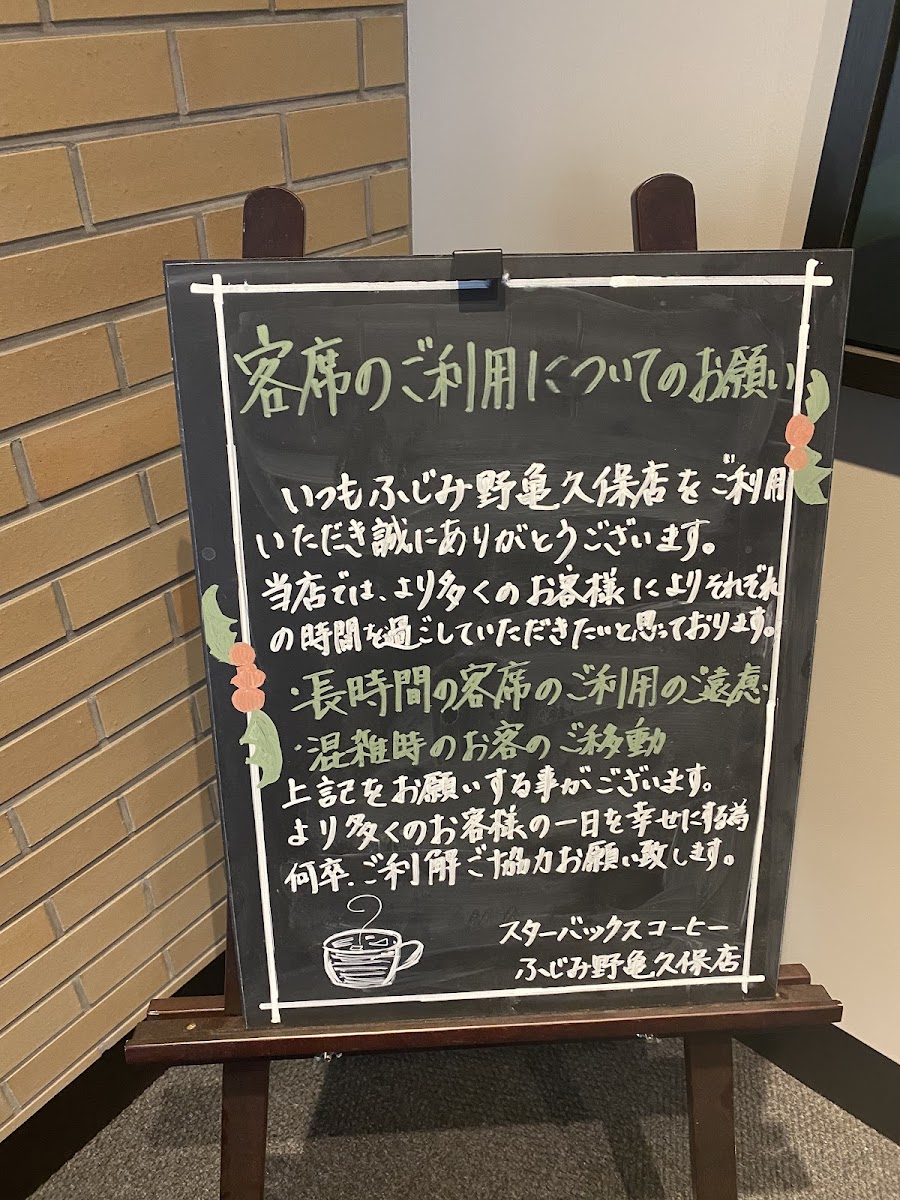 客席のご利用についてのお願い
いつもふじみ野亀久保店をご利用
いただき誠にありがとうございます。
当店では、より多くのお客様によりそれぞれ
の時間を過ごしていただきたいと思っております。
・長時間の客席のご利用の遠慮
・混雑時のお客のご移動
上記をお願いする事がございます。
より多くのお客様の一日を幸せにする為
何卒、ご利解ご協力お願い致します。
スターバックスコーヒー
ふじみ野亀久保店